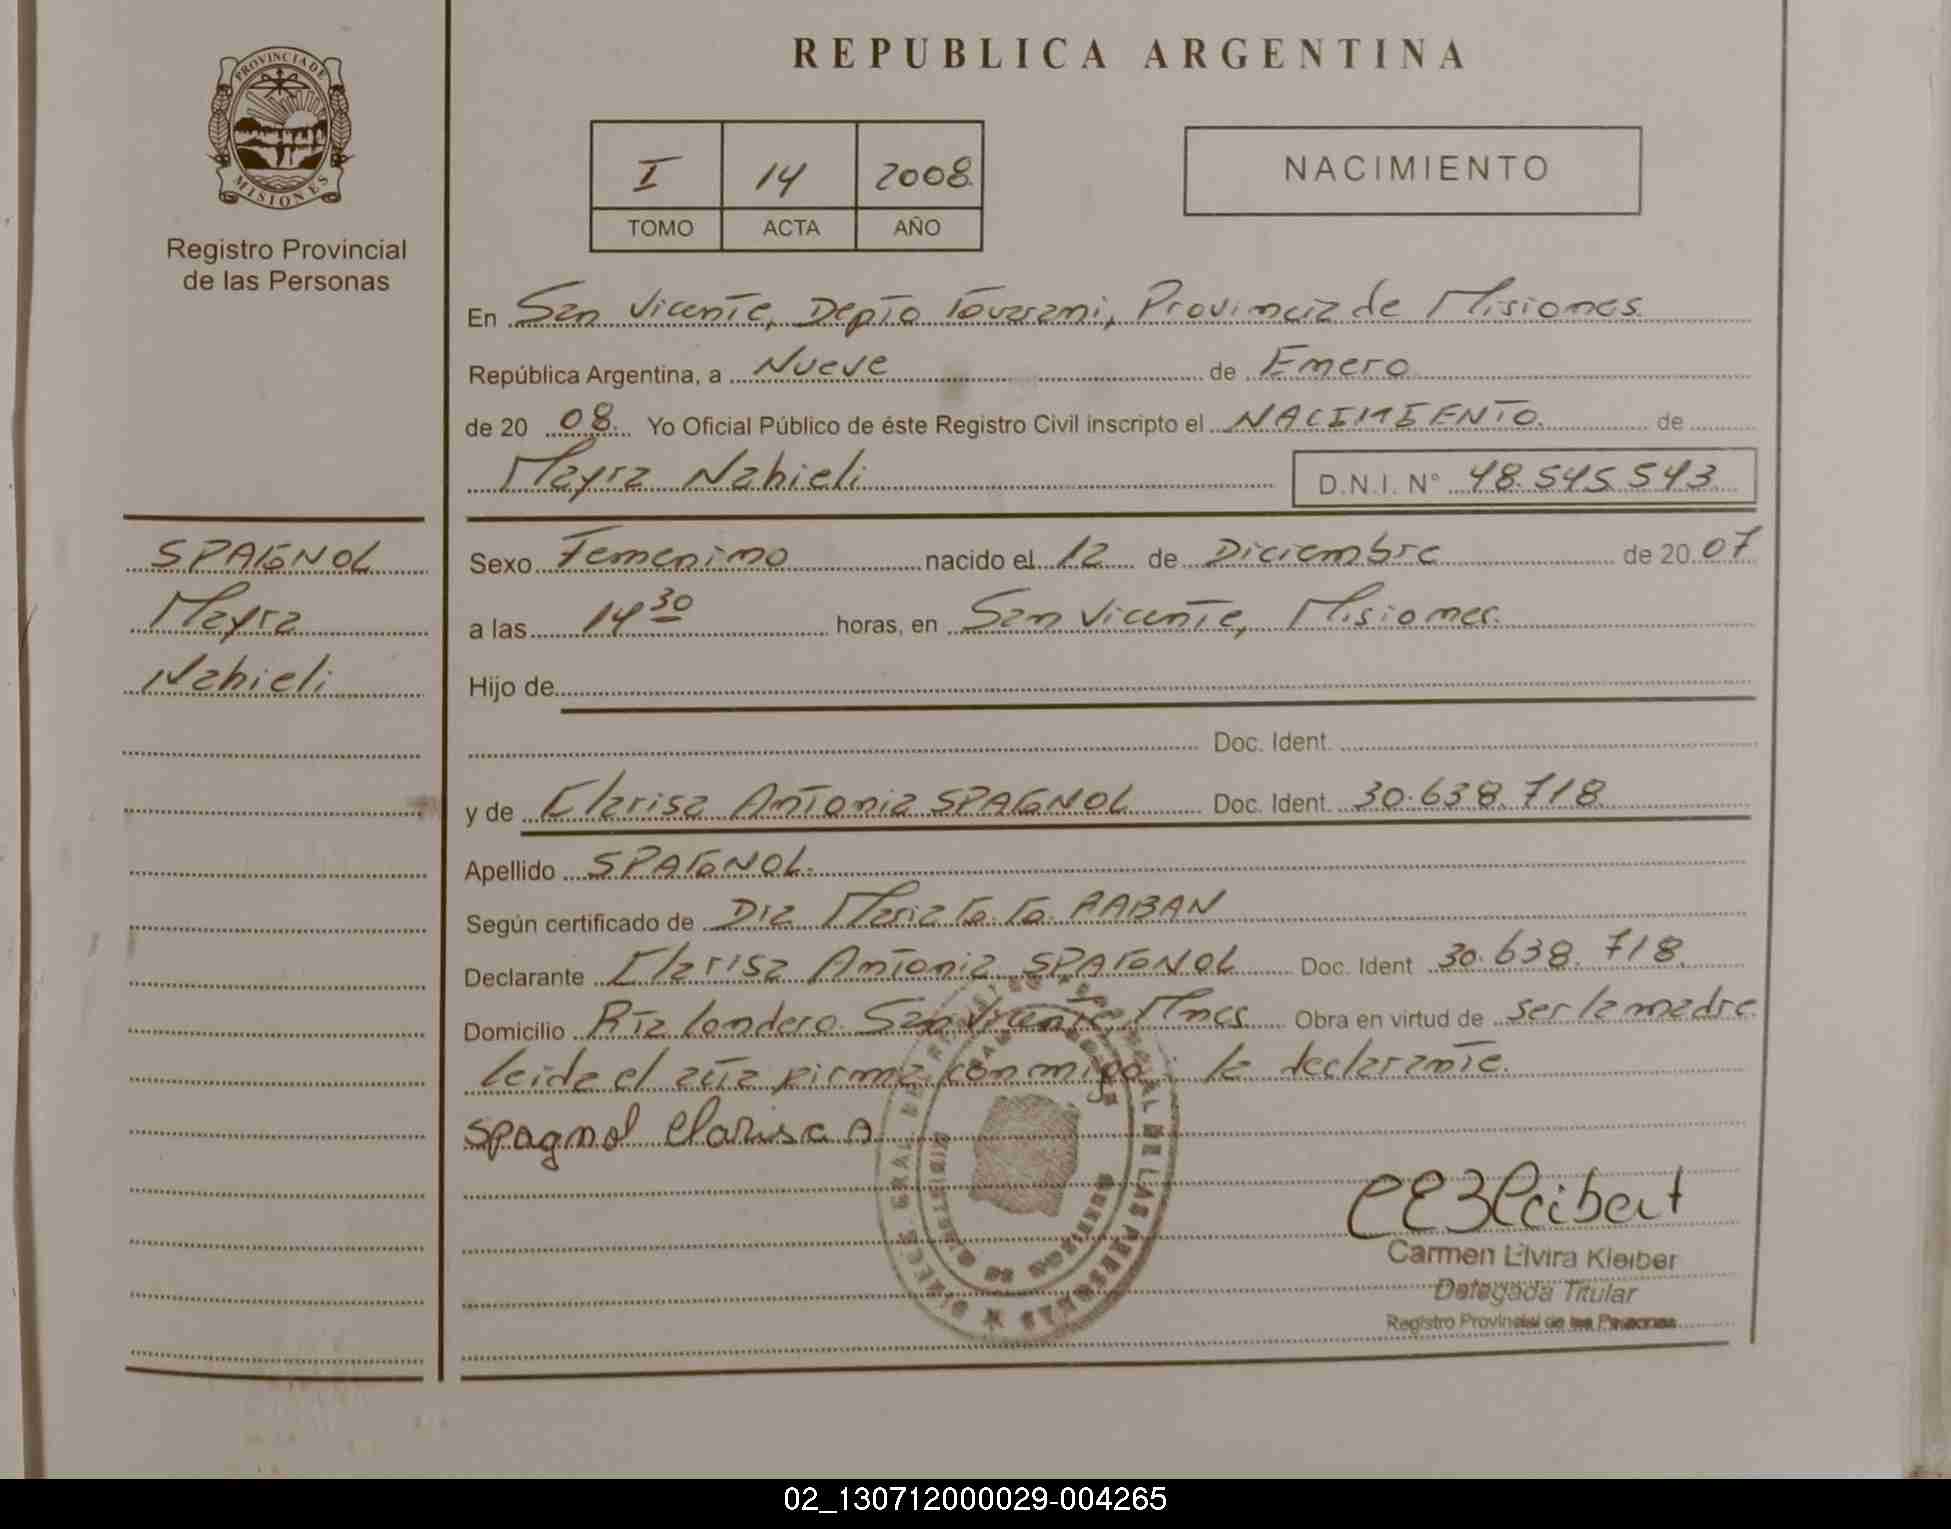 PROVINCIA DE
MISIONES
Registro Provincial
de las Personas
REPUBLICA ARGENTINA
I 14 2008
TOMO ACTA AÑO
NACIMIENTO
En San Vicente, Depto Guarani, Provincia de Misiones
República Argentina, a Nueve de Enero
de 20 08. Yo Oficial Público de éste Registro Civil inscripto el NACIMIENTO. de
Mayra Nahieli D.N.I. N° 48.545.543
SPAGNOL
Mayra
Nahieli
Sexo Femenino nacido el 12 de Diciembre de 20 07
a las 14 30 horas, en San Vicente, Misiones.
Hijo de
Doc. Ident.
y de Clarisa Antonia SPAGNOL Doc. Ident. 30.638.718
Apellido SPAGNOL.
Según certificado de Dra Maria G. G. RABAN
Declarante Clarisa Antonia SPAGNOL Doc. Ident 30.638.718.
Domicilio Pía Londero San Vicente, Mnes Obra en virtud de ser la madre
leida el acta firma conmigo la declarante.
Spagnol Clarisa A
Carmen Elvira Kleiber
Delegada Titular
Registro Provincial de las Personas
02_130712000029-004265